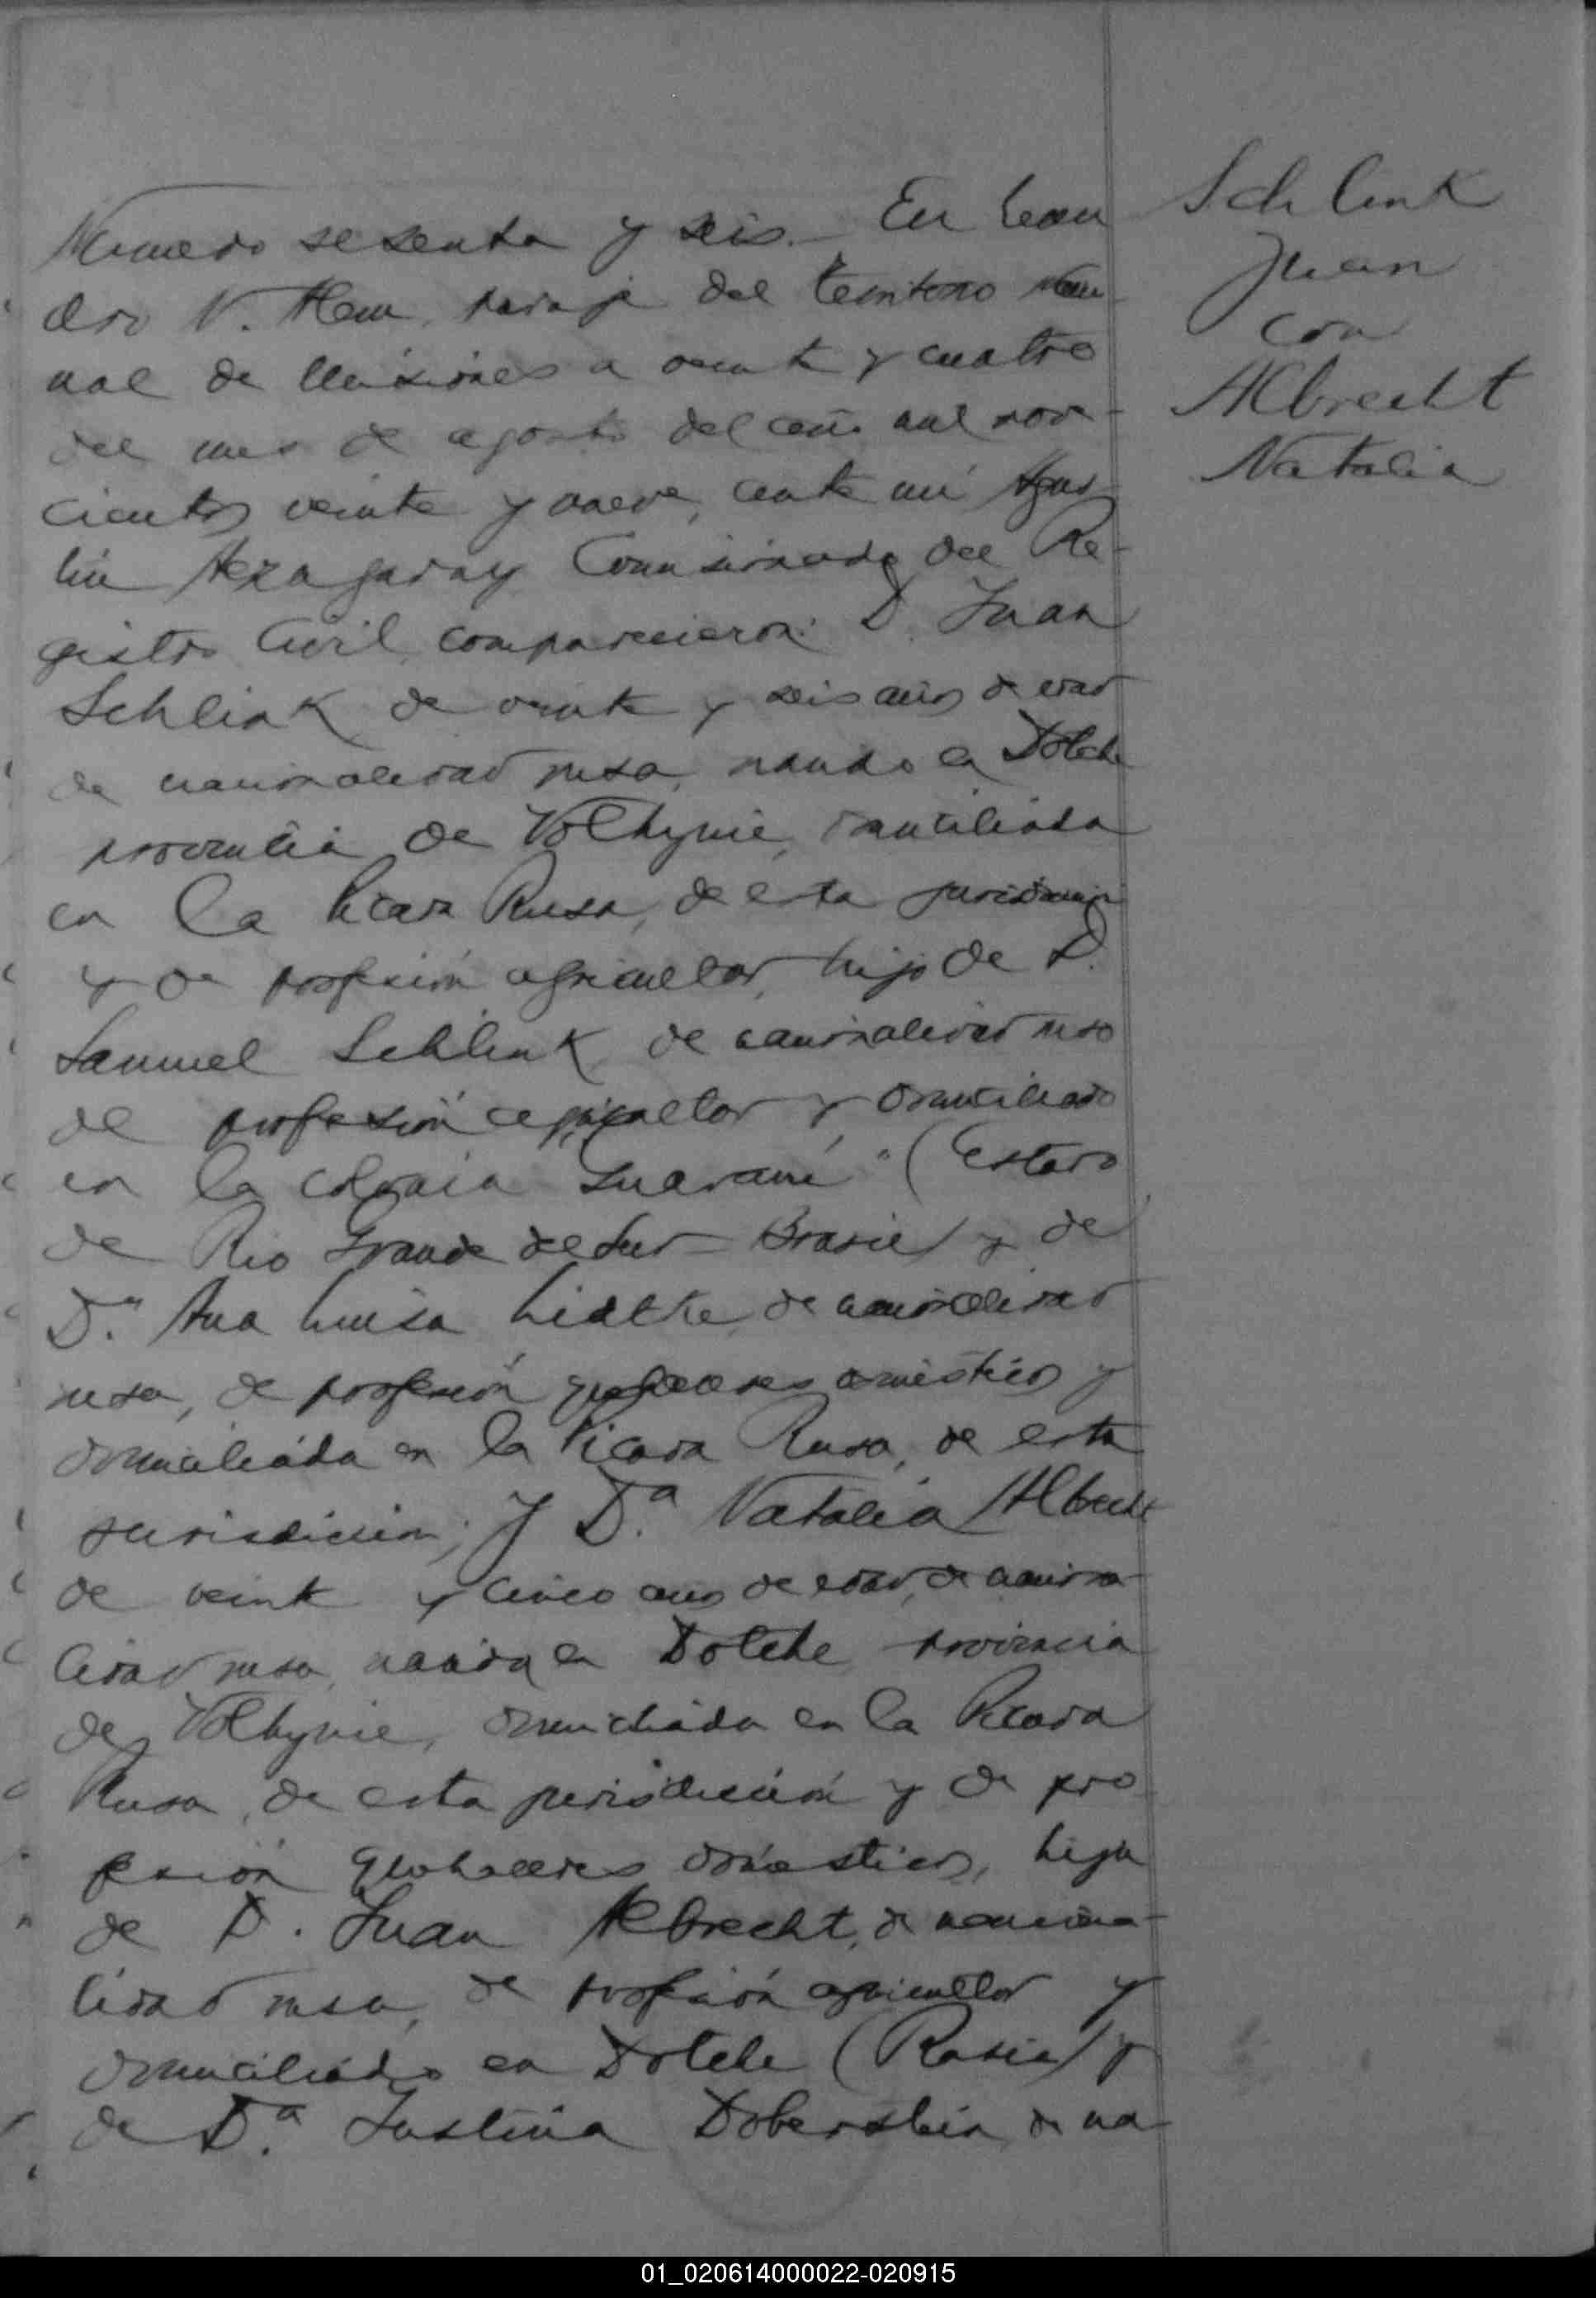 Schlink
Juan
con
Albrecht
Natalia
Numero sesenta y seis.- En Lean
dro N. Alem, paraje del territorio Nacio
nal de Misiones a veinte y cuatro
del mes de agosto del año mil nove-
cientos veinte y nueve, ante mí Agus-
tín Azagaray Comisionado del Re-
gistro Civil, comparecieron: D. Juan
Schlink de veinte y seis años de edad
de nacionalidad rusa, nacido en
provincia de Volhynie, domiciliado
en la Picada Rusa, de esta jurisdicción
y de profesión agricultor, hijo de D.
Samuel Schlink, de nacionalidad ruso
de profesión agricultor y domiciliado
en la colonia Guaraní" (Estado
de Rio Grande del Sur - Brasil) y de
D.ª Ana Luisa, de nacionalidad
rusa, de profesión quehaceres domésticos y
domiciliada en la Picada Rusa, de esta
jurisdicción; y D.ª Natalia Albrecht
de veinte y cinco años de edad, de naciona-
lidad rusa, nacida en provincia
de Volhynie, domiciliada en la Picada
Rusa, de esta jurisdicción y de pro
fesión quehaceres domésticos, hija
de D. Juan Albrecht, de naciona-
lidad rusa, de profesión agricultor y
domiciliado en (Rusia) y
de D.ª Justina Doberstein, de na-
01_020614000022-020915